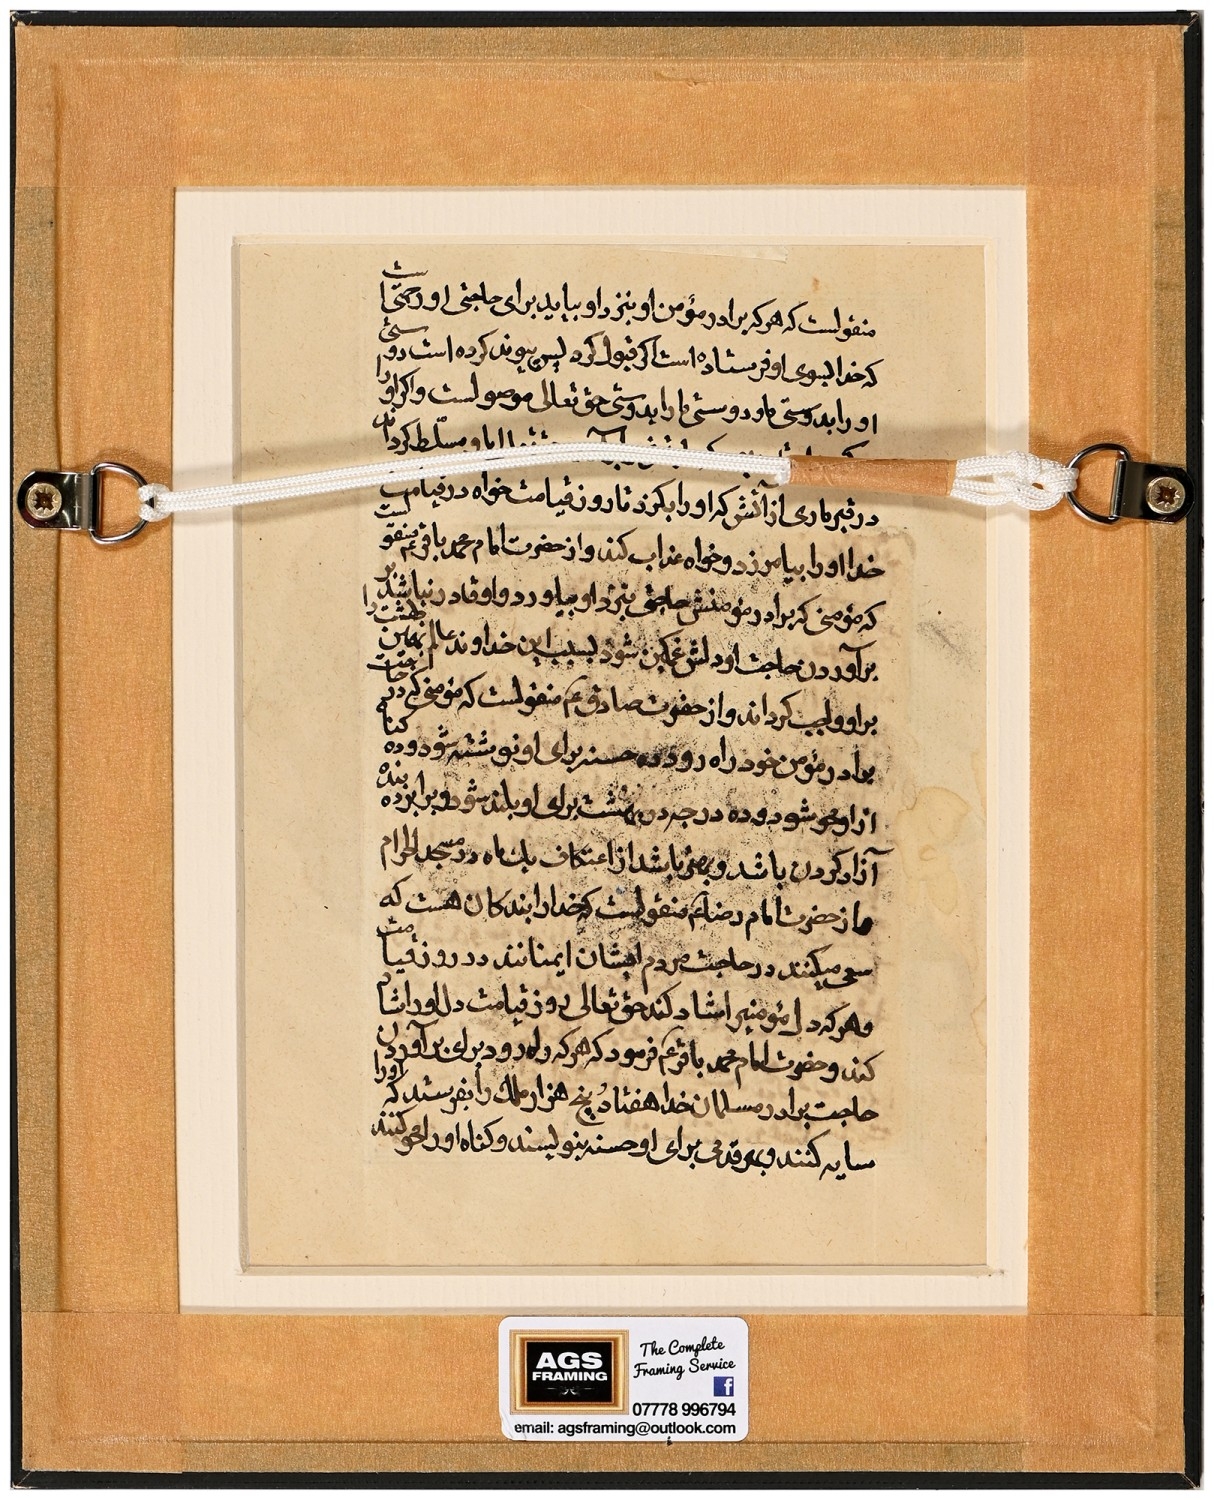 منقولست که هر که برادر مؤمن او بنزد او بیاید برای حاجتی او رحمتی است
که خدا بسوی او فرستاده است اکر قبول کرد پس پیوند کرده است دوستئ
او را بدوستی ما و دوستی ما را بدوستی حق تعالی موصولست و اکر او را
مسلط کرداند
در قبر ماری از آتش که او را بکزد تا روز قیامت خواه در قیامت
خدا او را بیامرزد و خواه عذاب کند و از حضرت امام محمد باقر ع منقولست
که مؤمنی که برادر مؤمنش حاجتی بنزد او بیاورد و او قادر نباشد بر
برآوردن حاجت او دلش غمکین شود بسبب این خداوند عالم بهمین بهشت را
بر او واجب کرداند و از حضرت صادق ع منقولست که مؤمنی که در حاجت
برادر مؤمن خود راه رود ده حسنه برای او نوشته شود و ده کناه
از او محو شود و ده درجه در بهشت برای او بلند شود و برابر ده بنده
آزاد کردن باشد و بهتر باشد از اعتکاف یك ماه در مسجد الحرام
و از حضرت امام رضا ع منقولست که خدا را بندکان هست که
سعی میکنند در حاجت مردم ایشان ایمنانند در روز قیامت
و هر که دل مؤمنیرا شاد کند حق تعالی روز قیامت دل او را شاد
کند و حضرت امام محمد باقر ع فرمود که هر که راه رود برای برآوردن
حاجت برادر مسلمان خدا هفتاد پنج هزار ملك را بفرستد که او را
سایه کنند و بهر قدمی برای او حسنه بنویسند و کناه او را محو کنند
AGS
FRAMING
The Complete
Framing Service
f
07778 996794
email: agsframing@outlook.com